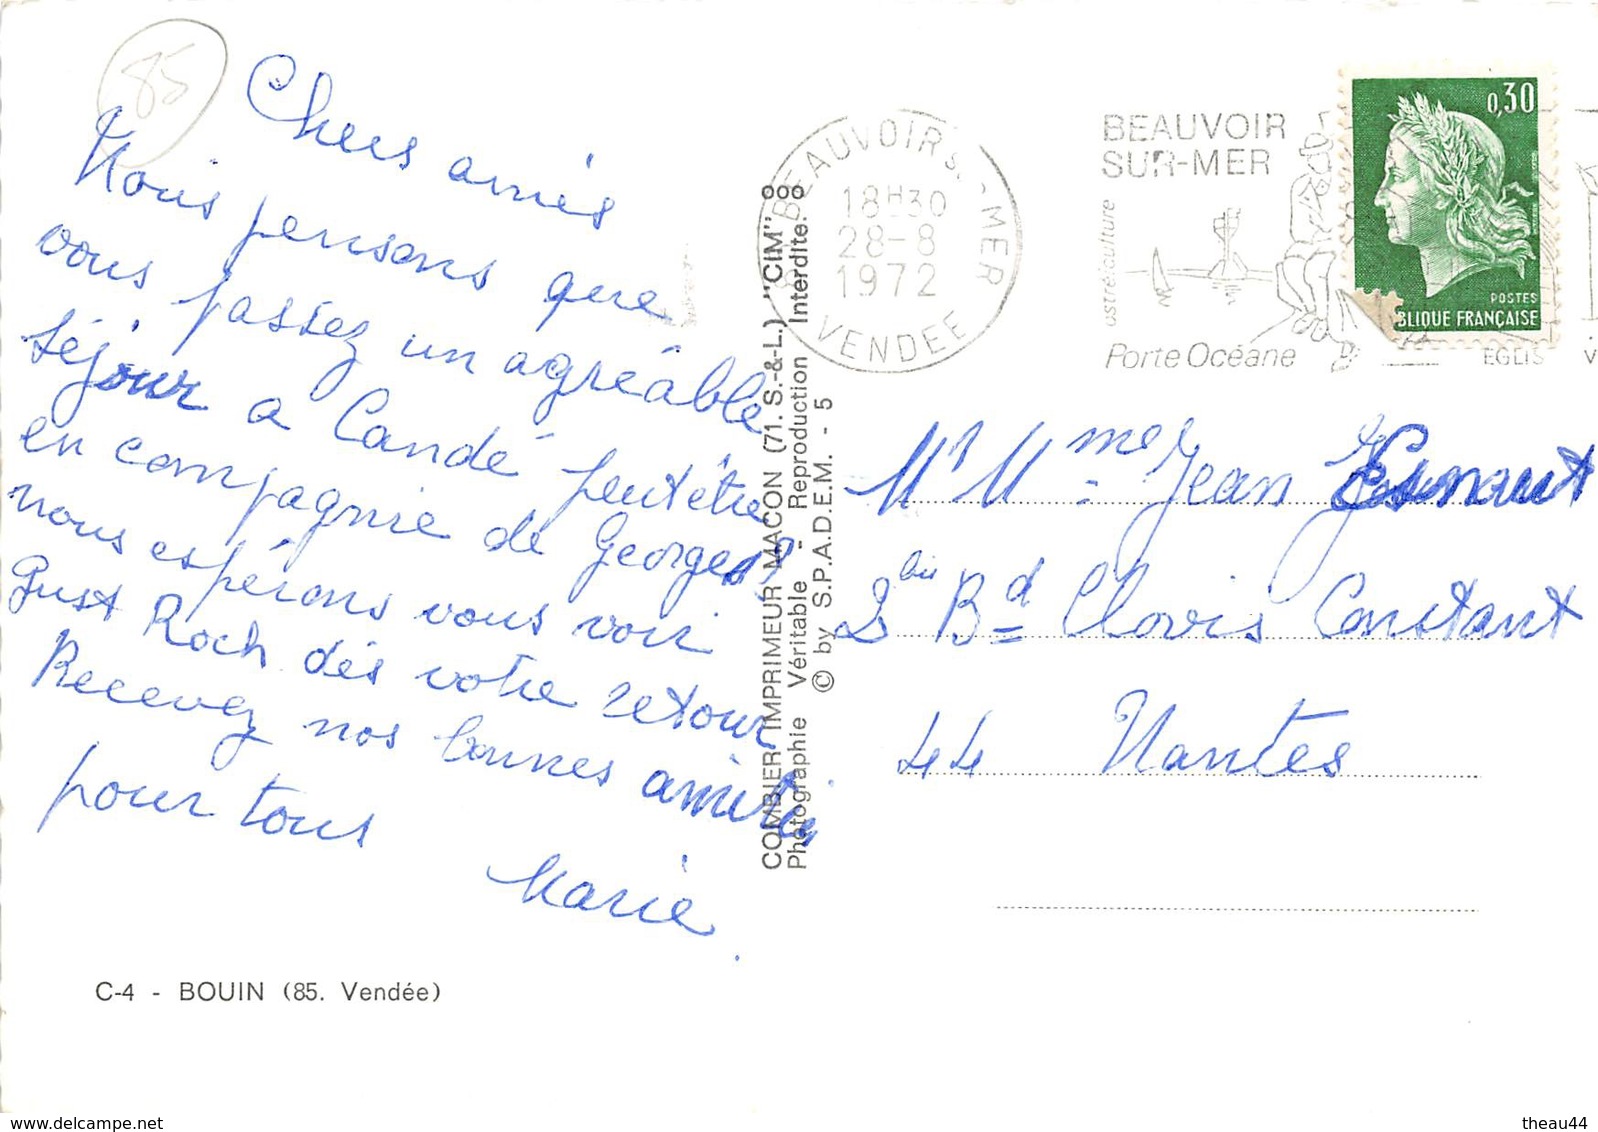 85
Chers amis
Nous pensons que
vous passez un agréable
séjour a Candé peut être
en compagnie de Georges ?
nous espérons vous voir
Just Roch dés votre retour
Recevez nos bonnes amitiés
pour tous
Marie.
C-4 - BOUIN (85. Vendée)
COMBIER IMPRIMEUR MACON (71. S.-&-L.) "CIM"
Photographie Véritable - Reproduction Interdite.
© by S.P.A.D.E.M. - 5
BEAUVOIR S.-MER
18H30
28-8
1972
VENDEE
BEAUVOIR
SUR-MER
ostréiculture
Porte Océane
EGLIS
0,30
POSTES
BLIQUE FRANÇAISE
Mr Mme Jean Esnaut
2 bis Bd Clovis Constant
44 Nantes
www.delcampe.net
theau44